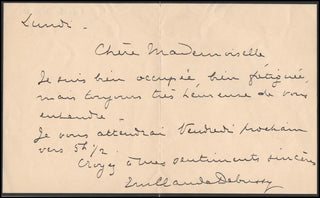 Lundi -
Chère Mademoiselle
Je suis bien occupée, bien fatiguée,
mais toujours très heureuse de vous
entendre -
Je vous attendrai Vendredi prochain
vers 5h 1/2
Croyez à mes sentiments sincères
Emm Claude Debussy